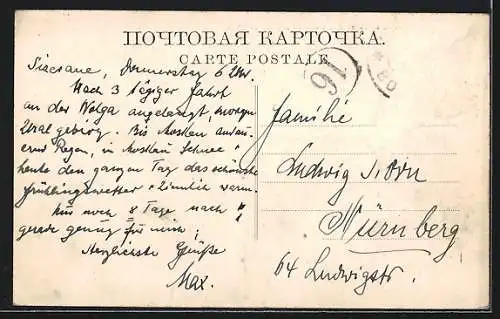 ПОЧТОВАЯ КАРТОЧКА.
CARTE POSTALE
Donnerstag 6 Uhr.
Nach 3 tägiger Fahrt
an der Wolga angelangt, morgen
Uralgebirg. Bis Moskau
Regen, in Moskau Schnee
heute den ganzen Tag das schönste
Frühlingswetter, ziemlich warm.
Nur noch 8 Tage nach
gerade genug für mich,
Herzlichste Grüße
Max.
16
Familie
Ludwig
Nürnberg
64 Ludwigstr.